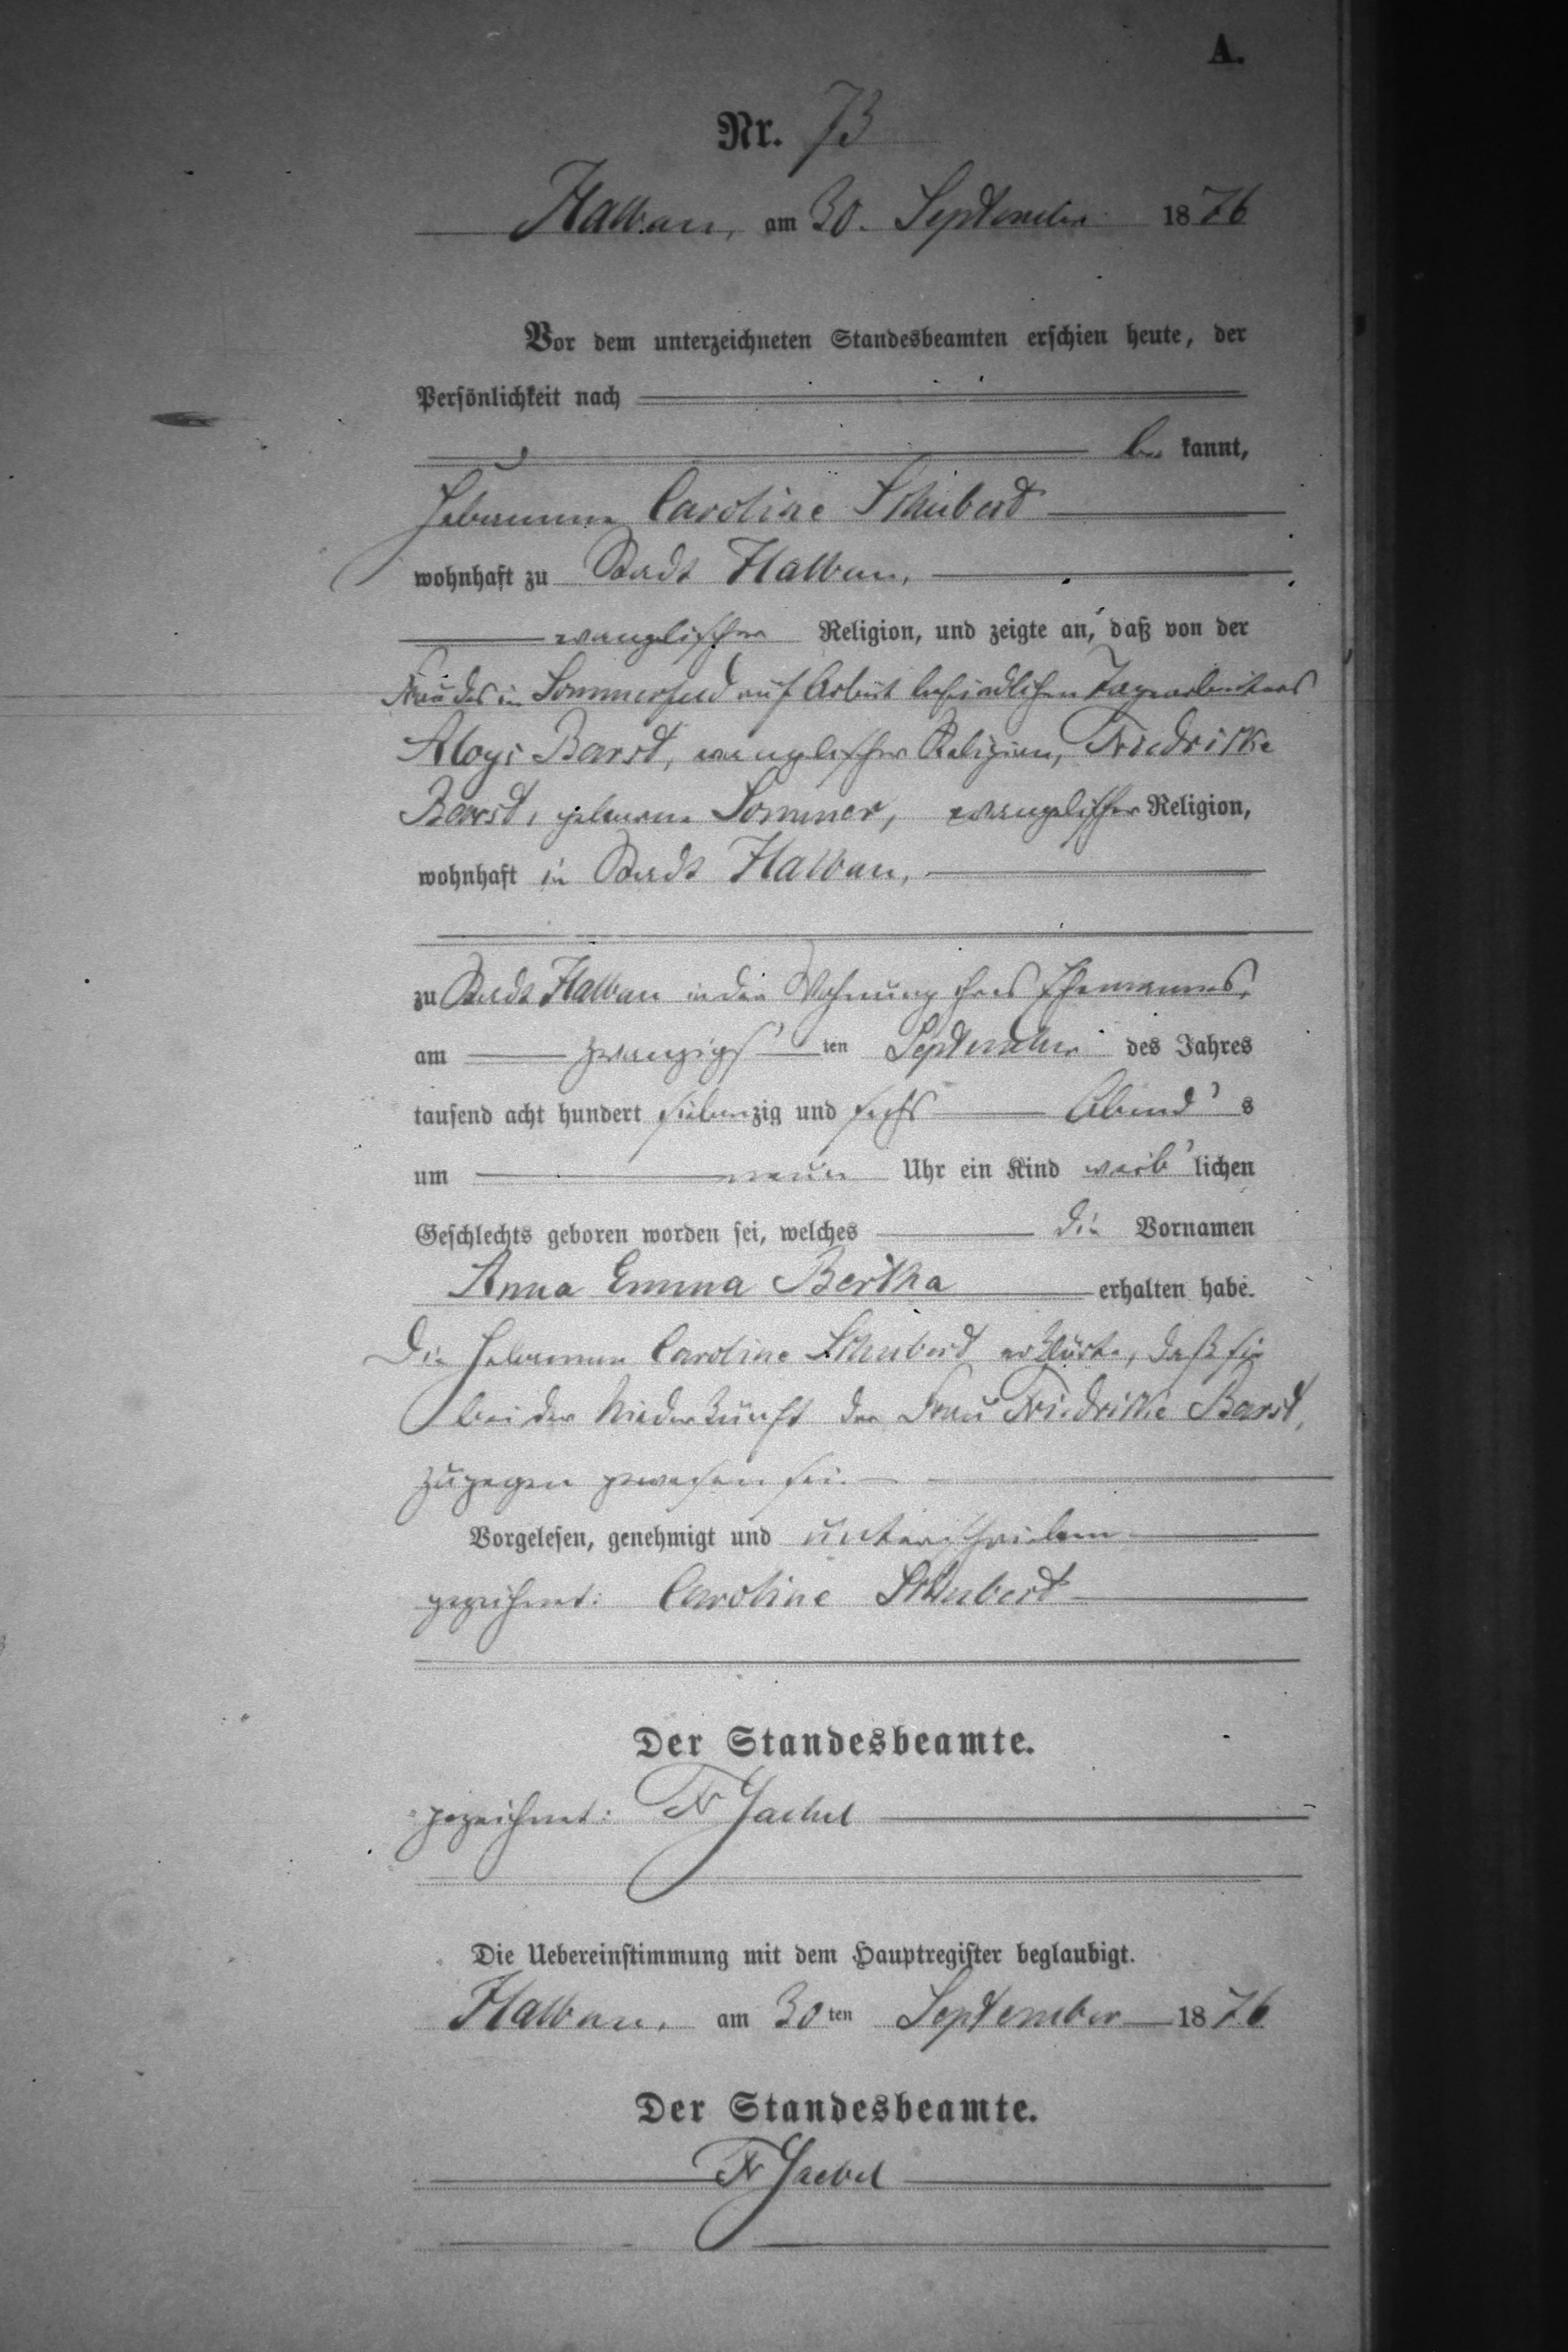 A.
Nr. 73
Halbau, am 30. September 1876
Vor dem unterzeichneten Standesbeamten erschien heute, der
Persönlichkeit nach
be kannt,
Hebamme Caroline Schubert
wohnhaft zu Stadt Halbau,
evangelischer Religion, und zeigte an, daß von der
Frau des in Sommerfeld auf Arbeit befindlichen Tagearbeiters
Aloys Barst, evangelischer Religion, Friedricke
Barst, geborene Sommer, evangelischer Religion,
wohnhaft in Stadt Halbau,
zu Stadt Halbau in der Wohnung ihres Ehemannes,
am zwanzigs ten September des Jahres
tausend acht hundert siebenzig und sechs Abend s
um neun Uhr ein Kind weib lichen
Geschlechts geboren worden sei, welches die Vornamen
Anna Emma Bertha erhalten habe.
Die Hebamme Caroline Schubert erklärte, daß sie
bei der Niederkunft der Frau Friedricke Barst,
zugegen gewesen sei.
Vorgelesen, genehmigt und unterschrieben
gezeichnet: Caroline Schubert
Der Standesbeamte.
gezeichnet: Fr Jaekel
Die Uebereinstimmung mit dem Hauptregister beglaubigt.
Halbau, am 30 ten September 1876
Der Standesbeamte.
Fr Jaekel